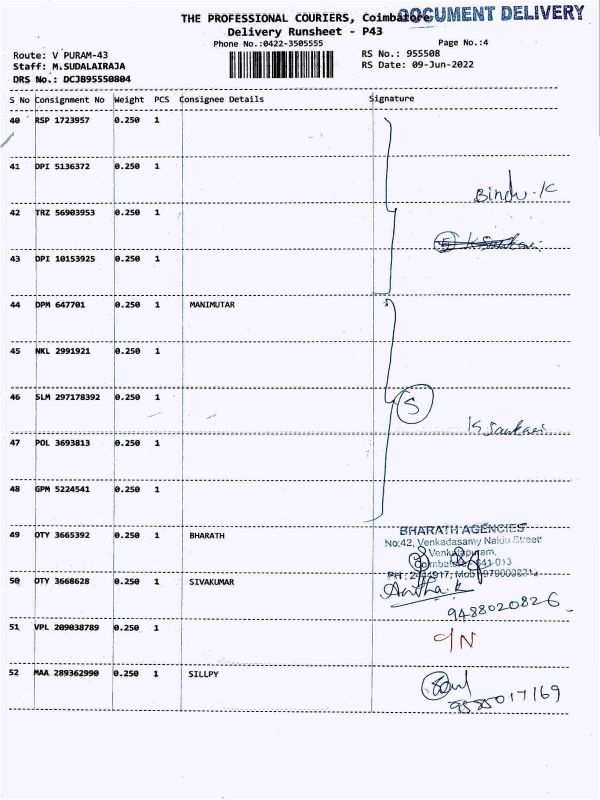 THE PROFESSIONAL COURIERS, Coimbatore
DOCUMENT DELIVERY
Delivery Runsheet - P43
Phone No.:0422-3505555
Page No.:4
Route: V PURAM-43
RS No.: 955508
Staff: M.SUDALAIRAJA
RS Date: 09-Jun-2022
DRS No.: DCJB95550804
S No Consignment No Weight PCS Consignee Details Signature
40 RSP 1723957 0.250 1
41 DPI 5136372 0.250 1
Bindu.K
42 TRZ 56903953 0.250 1
43 DPI 10153925 0.250 1
44 DPM 647701 0.250 1 MANIMUTAR
45 NKL 2991921 0.250 1
46 SLM 297178392 0.250 1
5
K Sankari
47 POL 3693813 0.250 1
48 GPM 5224541 0.250 1
BHARATH AGENCIES
49 OTY 3665392 0.250 1 BHARATH
No:42, Venkadasamy Naidu Street
Venkatapuram,
Coimbatore 641 013
50 OTY 3668628 0.250 1 SIVAKUMAR
Anitha.k
9488020826
51 VPL 209038789 0.250 1
52 MAA 289362990 0.250 1 SILLPY
9585017169